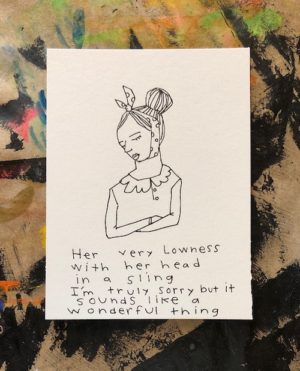 Her very Lowness
with her head
in a sling
I'm truly sorry but it
sounds like a
wonderful thing